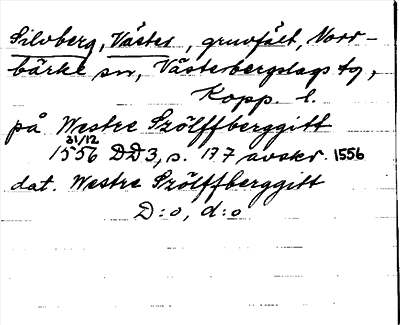 Silvberg, Västra, gruvfält, Norr-
bärke sn, Västerbergslags tg,
Kopp. l.
på Westre Szölffberggitt
1556 31/12 DD3, s. 177 avskr. 1556
dat. Westre Szölffberggitt
D:o, d:o